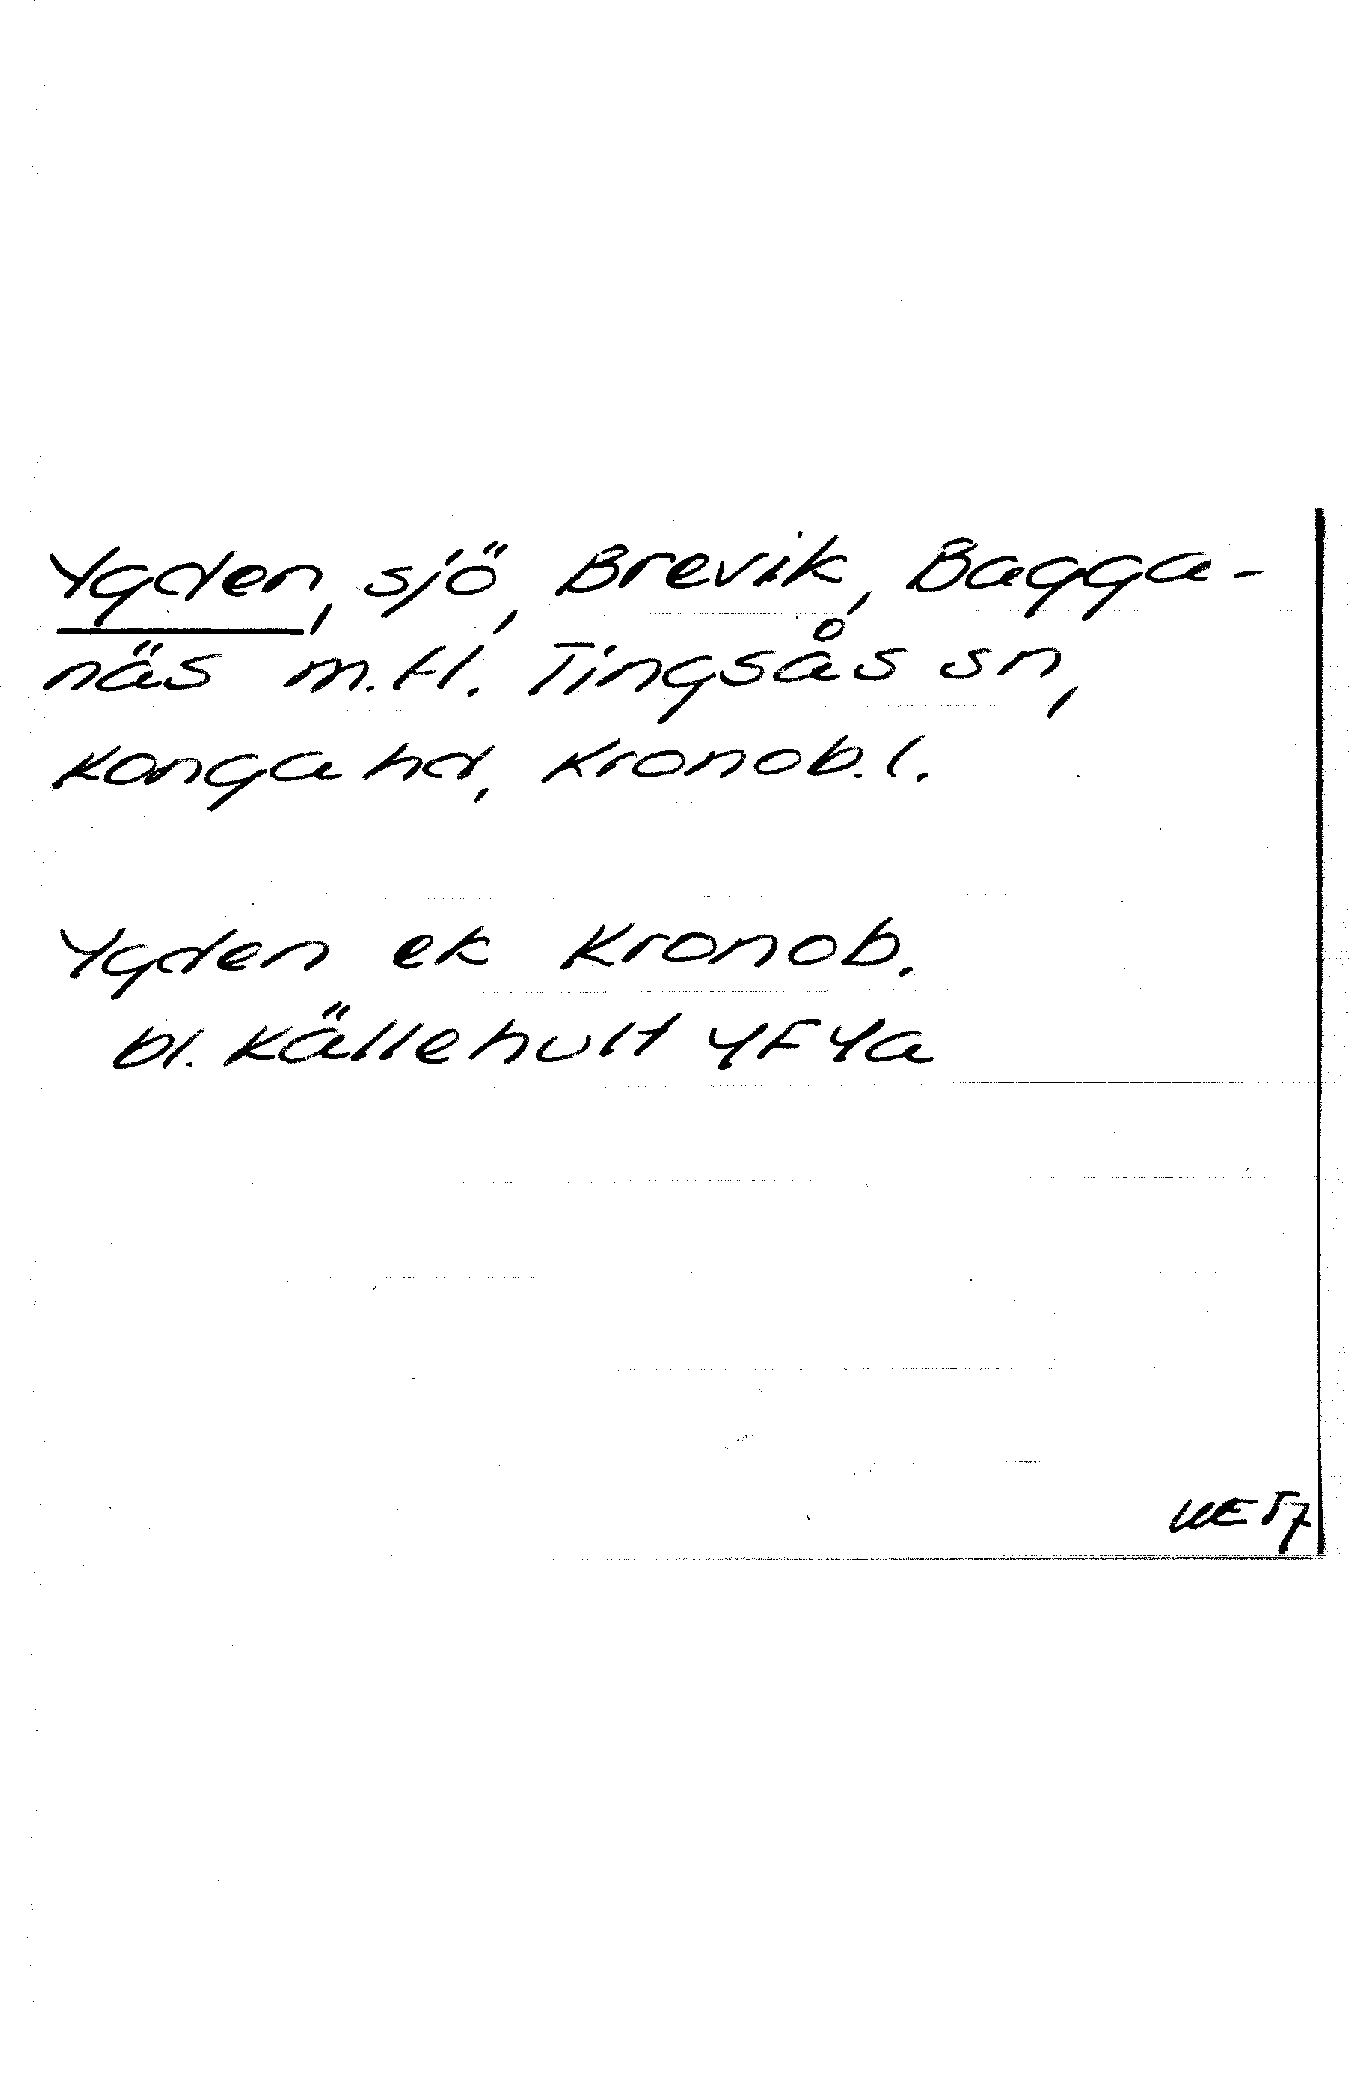 Ygden, sjö, Brevik, Bagga-
näs m.fl. Tingsås sn,
Konga hd, Kronob. l.
Ygden ek Kronob.
bl. Källehult 4F4a